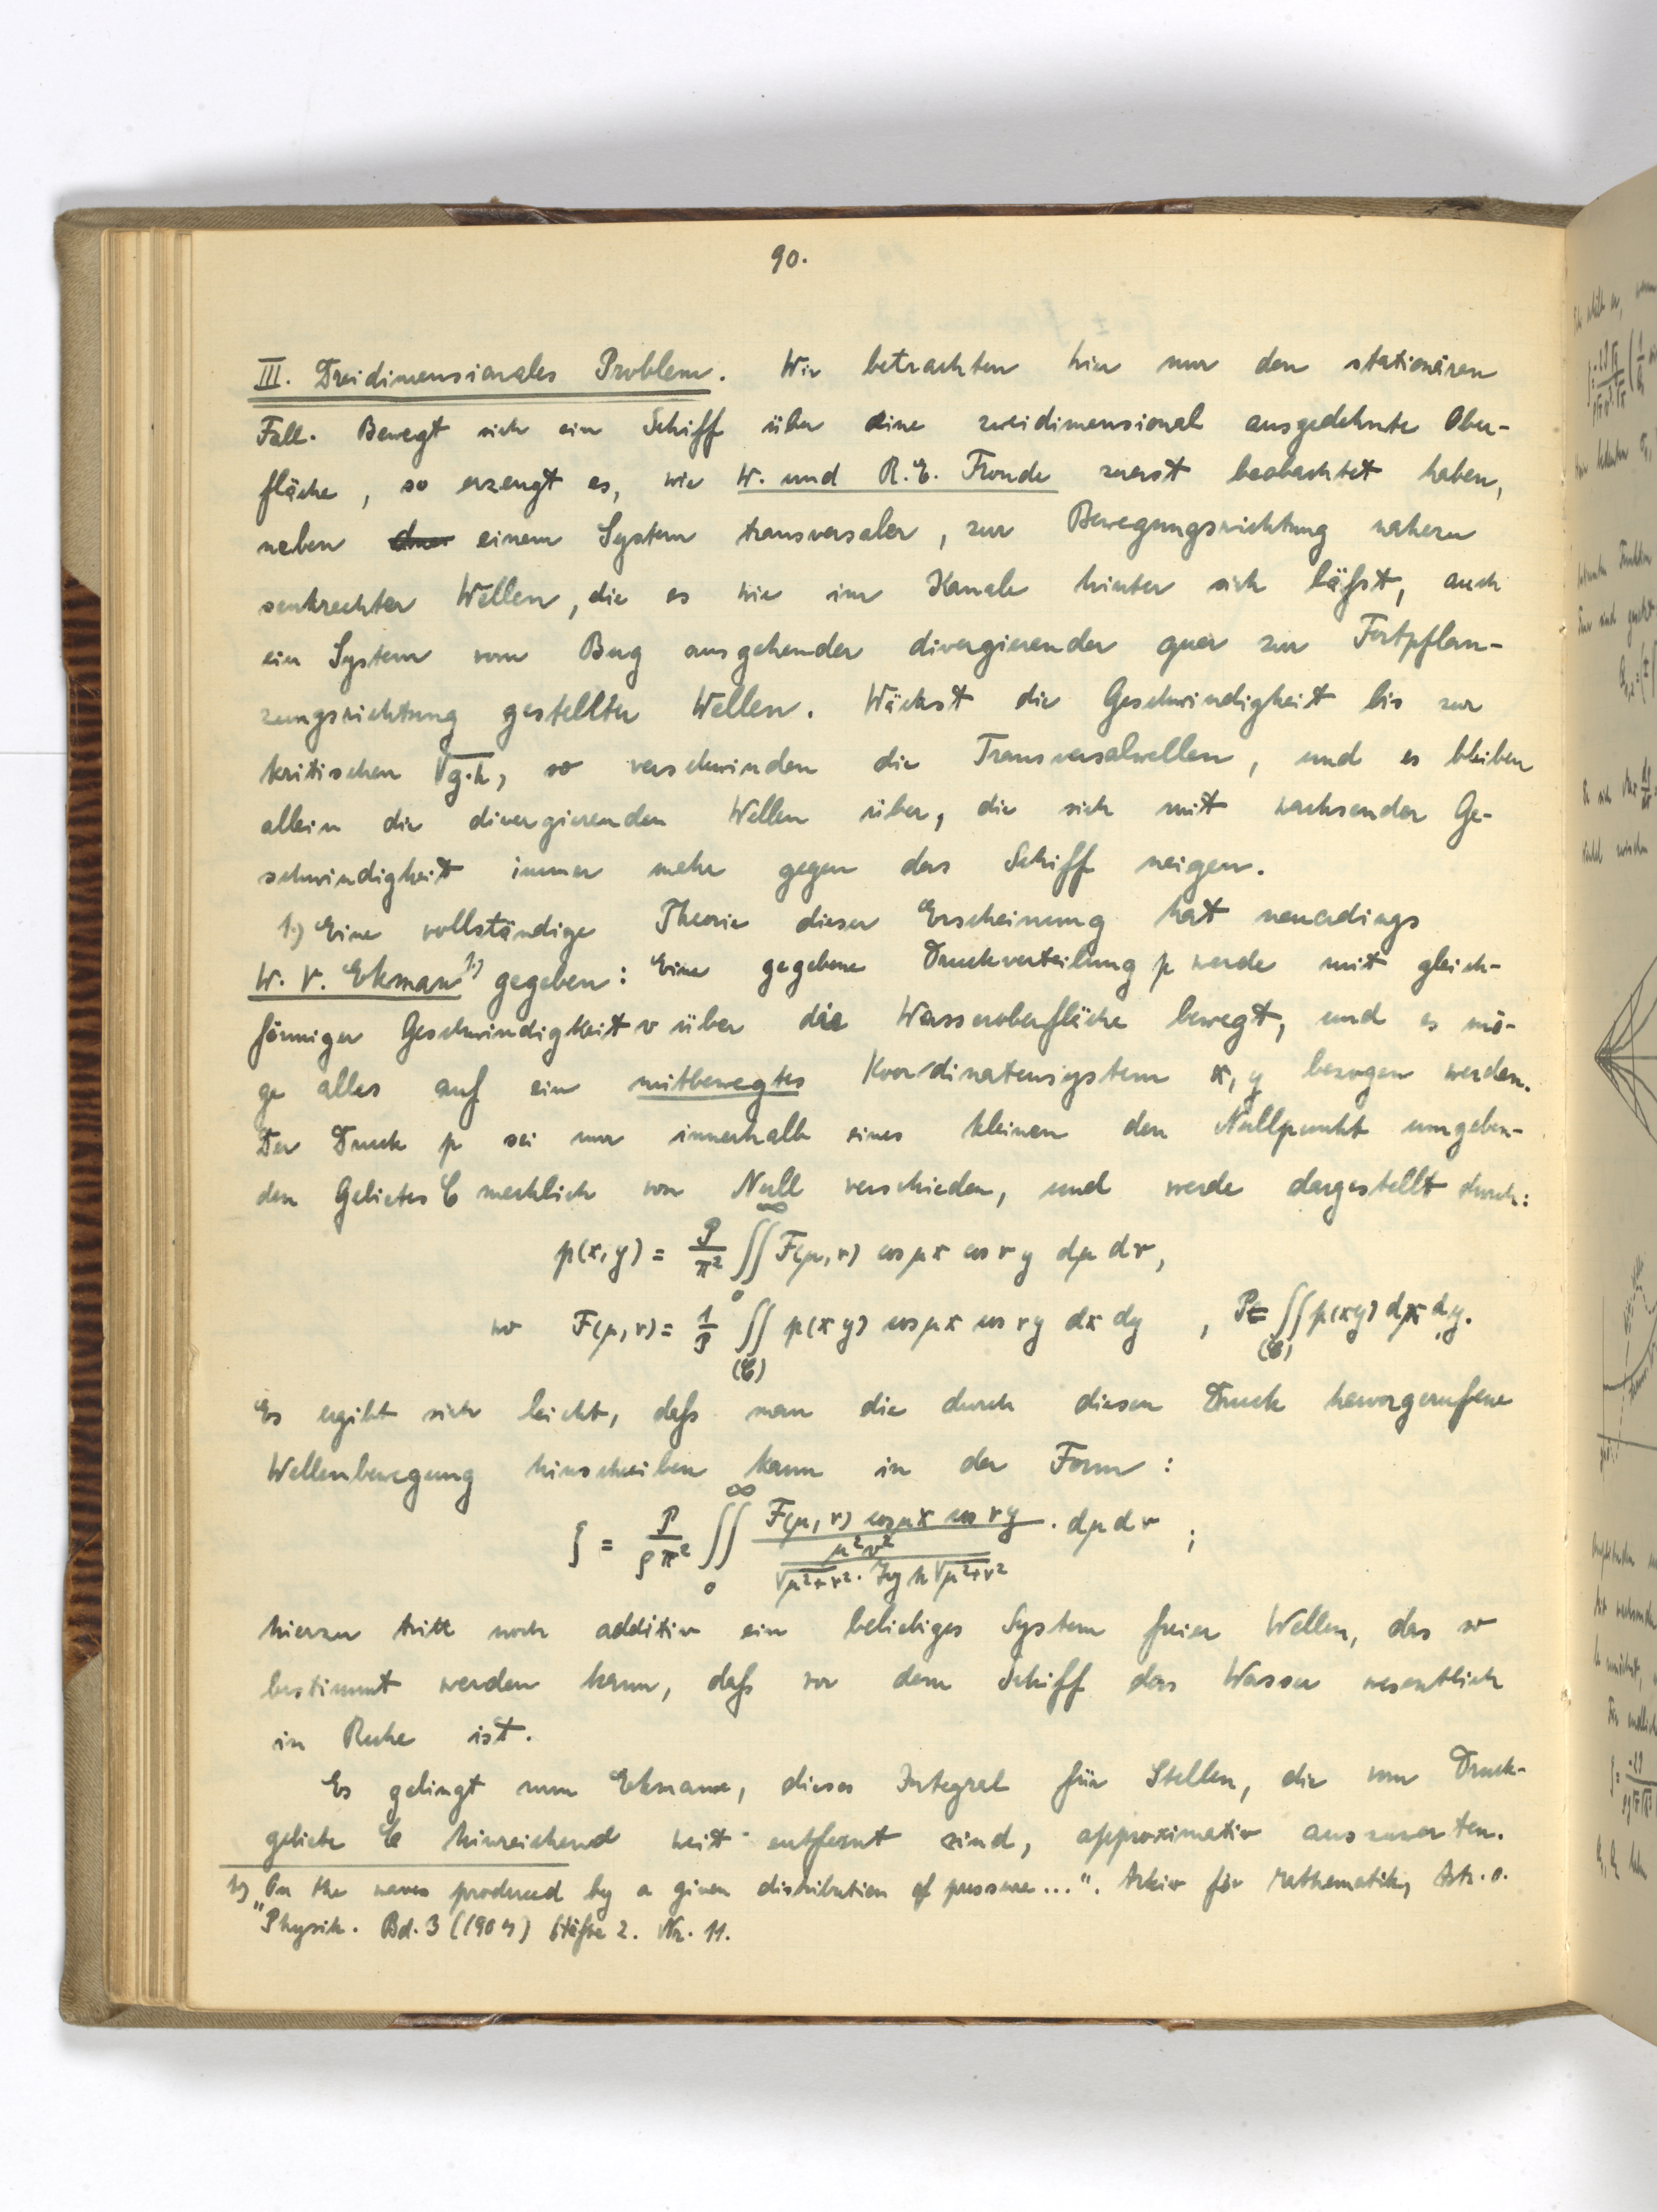 90.
III. Dreidimensionales Problem. Wir betrachten hier nur den stationären
Fall. Bewegt sich ein Schiff über eine zweidimensional ausgedehnte Ober-
fläche, so erzeugt es, wie W. und R.E. Froude zuerst beobachtet haben,
neben einem System transversaler, zur Bewegungsrichtung nahezu
senkrechter Wellen, die es wie im Kanale hinter sich läßt, auch
ein System vom Bug ausgehender divergierender quer zur Fortpflan-
zungsrichtung gestellter Wellen. Wächst die Geschwindigkeit bis zur
kritischen √g.h, so verschwinden die Transversalwellen, und es bleiben
allein die divergierenden Wellen über, die sich mit wachsender Ge-
schwindigkeit immer mehr gegen das Schiff neigen.
1.) Eine vollständige Theorie dieser Erscheinung hat neuerdings
W. V. Ekman 1.) gegeben: Eine gegebene Druckverteilung p werde mit gleich-
förmiger Geschwindigkeit v über die Wasseroberfläche bewegt, und es mö-
ge alles auf ein mitbewegtes Koordinatensystem x, y bezogen werden.
Der Druck p sei nur innerhalb eines kleinen den Nullpunkt umgeben-
den Gebietes C merklich von Null verschieden, und werde dargestellt durch:
p(x,y) = P/π² ∫∫₀^∞ F(μ,ν) cos μx cos νy dμ dν,
wo F(μ,ν) = 1/P ∫∫_(C) p(xy) cos μx cos νy dx dy , P = ∫∫_(C) p(xy) dx dy.
Es ergibt sich leicht, daß man die durch diesen Druck hervorgerufene
Wellenbewegung hinschreiben kann in der Form:
ζ = P/ρπ² ∫∫₀^∞ F(μ,ν) cos μx cos νy / (μ²v² / √μ²+ν² · Tg h√μ²+ν²) · dμ dν ;
hierzu tritt noch additiv ein beliebiges System freier Wellen, das so
bestimmt werden kann, daß vor dem Schiff das Wasser wesentlich
in Ruhe ist.
Es gelingt nun Ekman, dieses Integral für Stellen, die vom Druck-
gebiete C hinreichend weit entfernt sind, approximativ auszuwerten.
1.) "On the waves produced by a given distribution of pressure...". Arkiv för Mathematik, Astr. o.
Physik. Bd. 3 Häfte 2. Nr. 11.